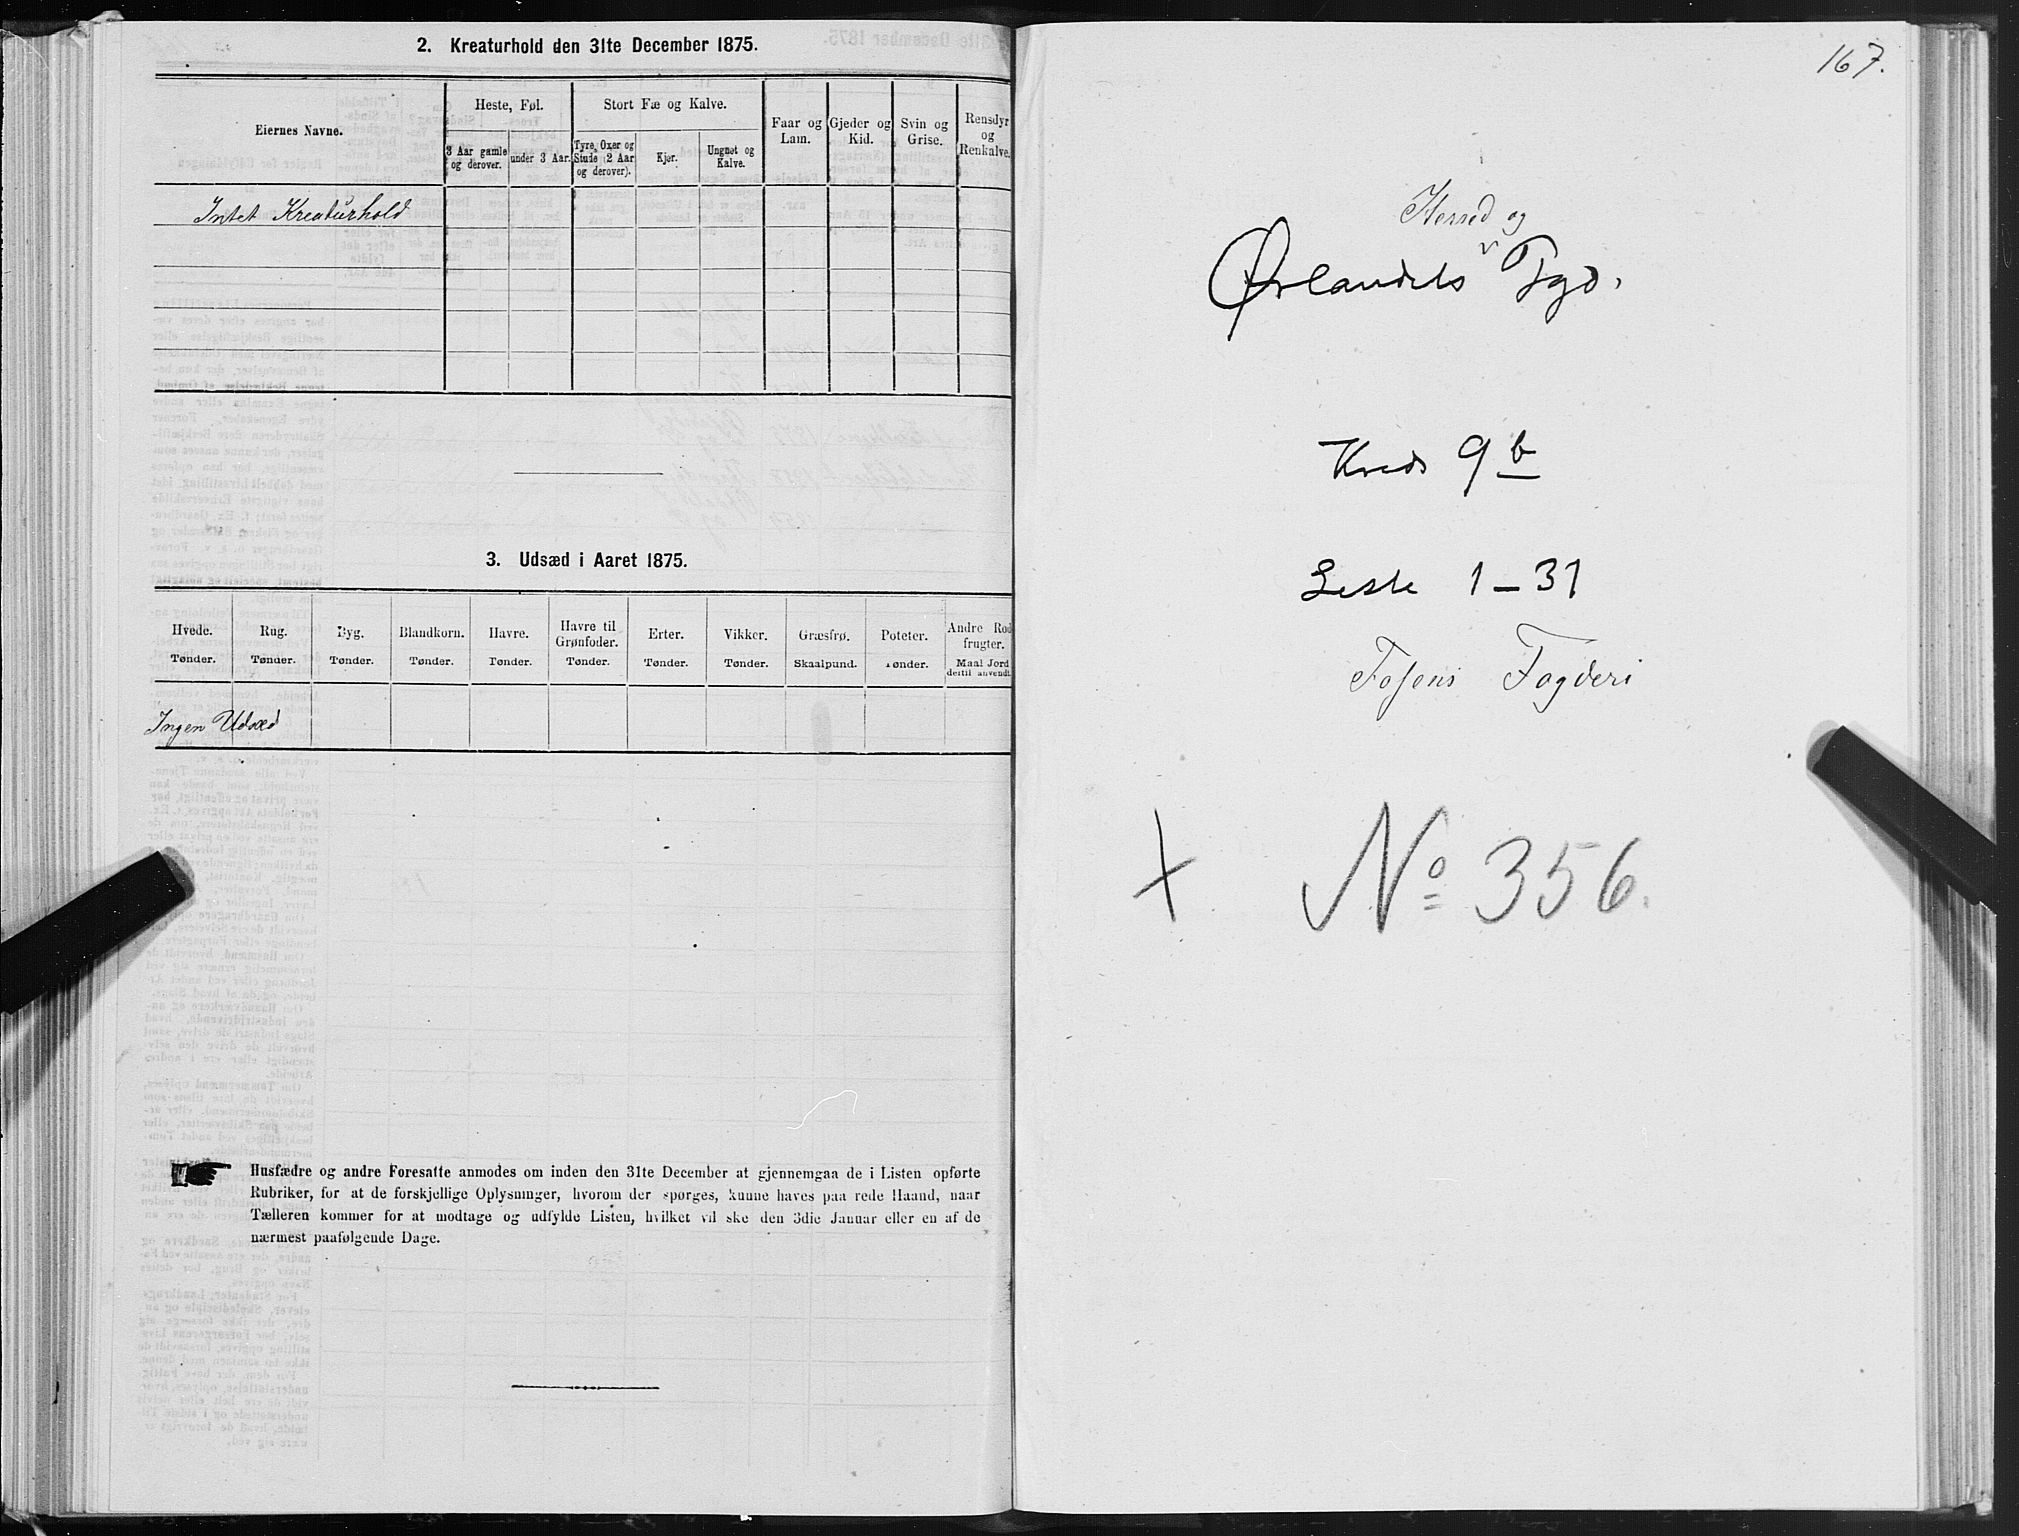 2. Kreaturhold den 31te December 1875.
Eiernes Navne.
Heste, Føl.
3 Aar gamle og derover.
under 3 Aar.
Stort Fæ og Kalve.
Tyre, Oxer og Stude (2 Aar og derover).
Kjør.
Ungnøt og Kalve.
Faar og Lam.
Gjeder og Kid.
Svin og Grise.
Rensdyr og Renkalve.
Intet Kreaturhold
3. Udsæd i Aaret 1875.
Hvede. Rug. Byg. Blandkorn. Havre. Havre til Grønfoder. Erter. Vikker. Græsfrø. Poteter. Andre Rodfrugter.
Tønder. Tønder. Tønder. Tønder. Tønder. Tønder. Tønder. Tønder. Skaalpund. Tønder. Maal Jord dertil anvendt.
Ingen Udsæd
Husfædre og andre Foresatte anmodes om inden den 31te December at gjennemgaa de i Listen opførte
Rubriker, for at de forskjellige Oplysninger, hvorom der spørges, kunne haves paa rede Haand, naar
Tælleren kommer for at modtage og udfylde Listen, hvilket vil ske den 3die Januar eller en af de
nærmest paafølgende Dage.
167.
Herred og
Ørlandets Tgd.
Kreds 9 b
Liste 1-31
Fosens Fogderi
+ No 356.